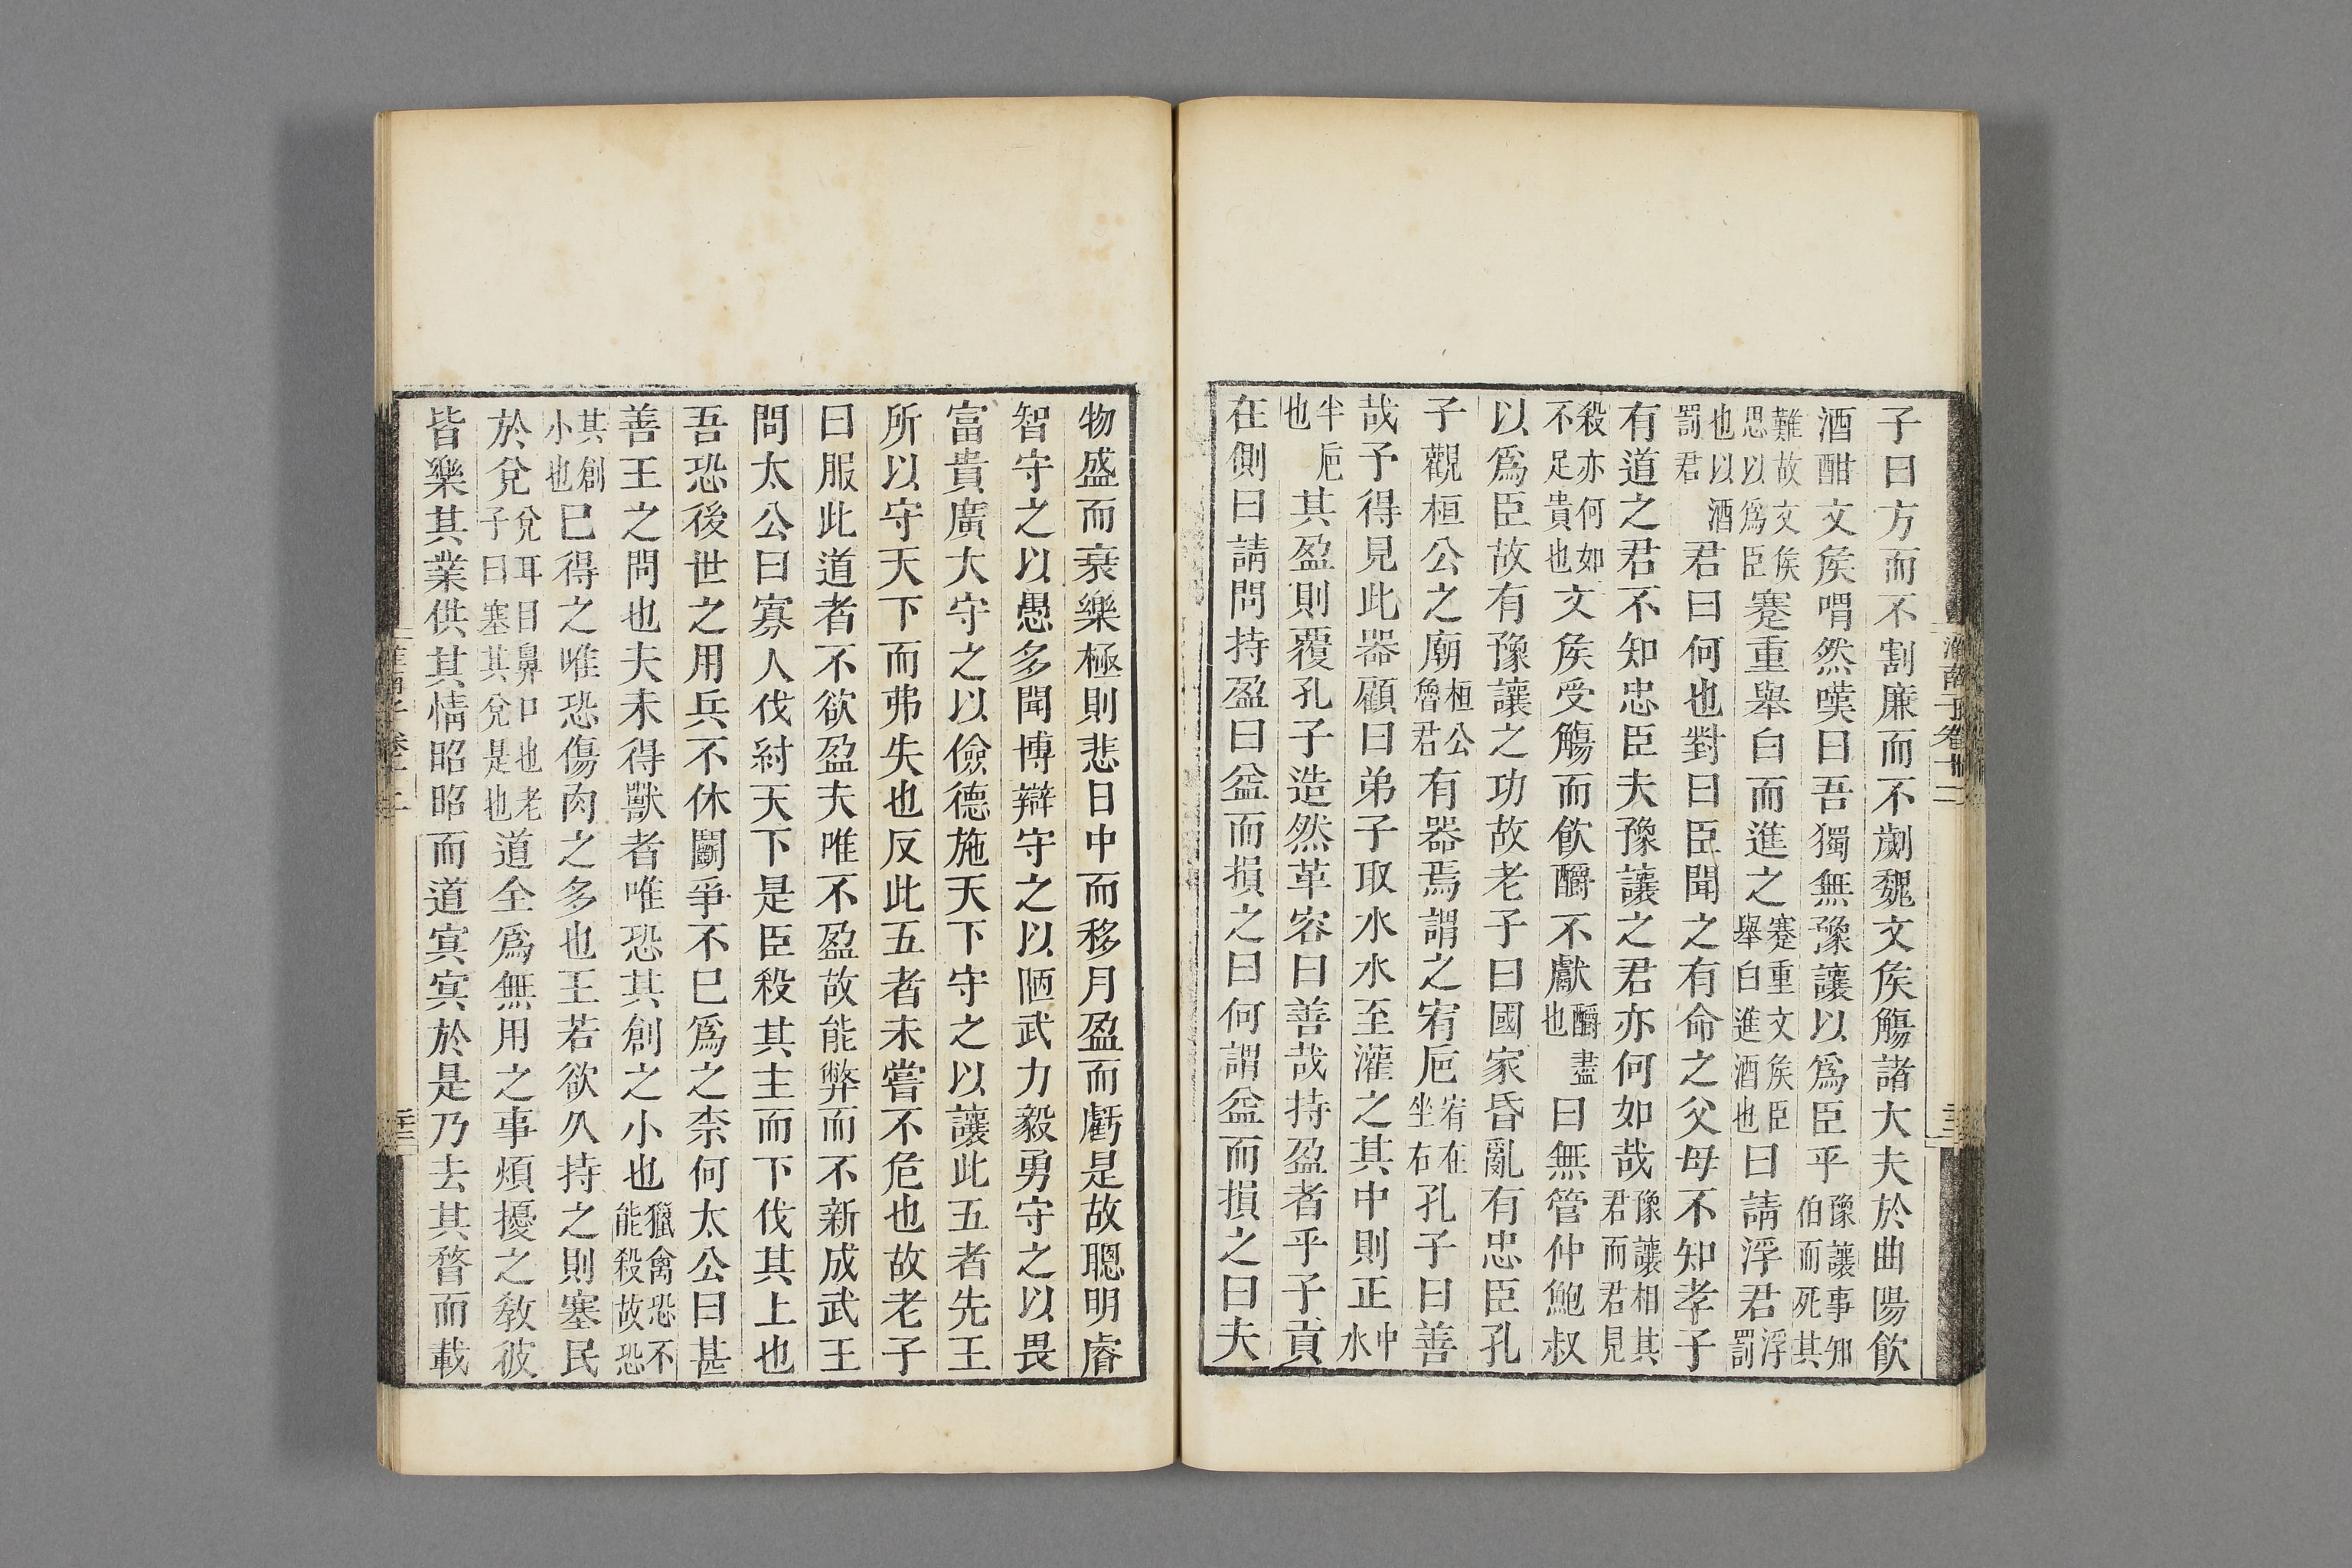 子曰方而不割廉而不劌魏文矦觴諸大夫於曲陽飲
酒酣文矦喟然嘆曰吾獨無豫讓以爲臣乎豫讓事知伯而死其
難故文矦思以爲臣蹇重舉白而進之蹇重文矦臣舉白進酒也曰請浮君浮罰
也以酒罰君君曰何也對曰臣聞之有命之父母不知孝子
有道之君不知忠臣夫豫讓之君亦何如哉豫讓相其君而君見
殺亦何如不足貴也文矦受觴而飲釂不獻釂盡也曰無管仲鮑叔
以爲臣故有豫讓之功故老子曰國家昏亂有忠臣孔
子觀桓公之廟桓公魯君有器焉謂之宥巵宥在坐右孔子曰善
哉予得見此器顧曰弟子取水水至灌之其中則正中水
半巵也其盈則覆孔子造然革容曰善哉持盈者乎子貢
在側曰請問持盈曰益而損之曰何謂益而損之曰夫
物盛而衰樂極則悲日中而移月盈而虧是故聰明睿
智守之以愚多聞博辯守之以陋武力毅勇守之以畏
富貴廣大守之以儉德施天下守之以讓此五者先王
所以守天下而弗失也反此五者未嘗不危也故老子
曰服此道者不欲盈夫唯不盈故能弊而不新成武王
問太公曰寡人伐紂天下是臣殺其主而下伐其上也
吾恐後世之用兵不休鬭爭不巳爲之柰何太公曰甚
善王之問也夫未得獸者唯恐其創之小也獵禽恐不能殺故恐
其創小也巳得之唯恐傷肉之多也王若欲久持之則塞民
於兌兌耳目鼻口也老子曰塞其兌是也道全爲無用之事煩擾之敎彼
皆樂其業供其情昭昭而道冥冥於是乃去其瞀而載
淮南子卷十二
淮南子卷十二